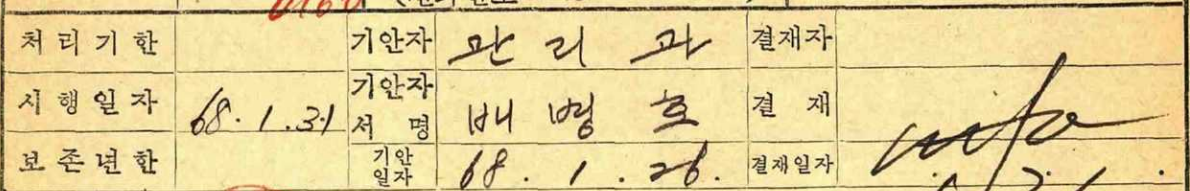 처리기한 기안자 관리과 결재자
시행일자 68.1.31 기안자 서명 배병호 결재
보존년한 기안일자 68.1.26. 결재일자